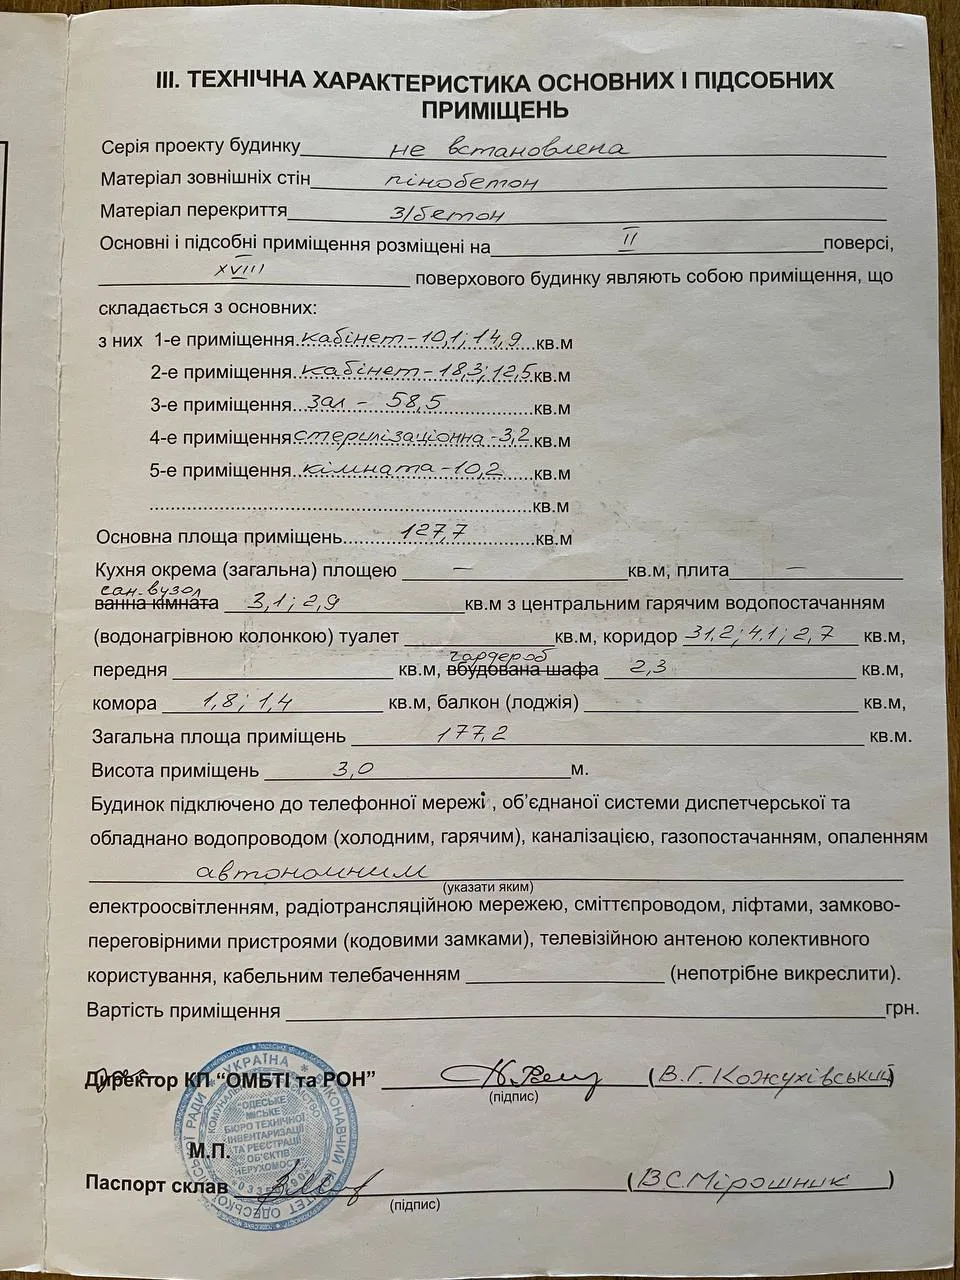 III. ТЕХНІЧНА ХАРАКТЕРИСТИКА ОСНОВНИХ І ПІДСОБНИХ
ПРИМІЩЕНЬ
Серія проекту будинку не встановлена
Матеріал зовнішніх стін пінобетон
Матеріал перекриття з/бетон
Основні і підсобні приміщення розміщені на II поверсі,
XVIII поверхового будинку являють собою приміщення, що
складається з основних:
з них 1-е приміщення кабінет - 10,1; 14,9 кв.м
2-е приміщення кабінет - 18,3; 12,5 кв.м
3-е приміщення зал - 58,5 кв.м
4-е приміщення стерилізаціонна - 3,2 кв.м
5-е приміщення кімната - 10,2 кв.м
кв.м
Основна площа приміщень 127,7 кв.м
Кухня окрема (загальна) площею — кв.м, плита —
сан. вузол
ванна кімната 3,1; 2,9 кв.м з центральним гарячим водопостачанням
(водонагрівною колонкою) туалет кв.м, коридор 31,2; 4,1; 2,7 кв.м,
гардероб
передня кв.м, вбудована шафа 2,3 кв.м,
комора 1,8; 1,4 кв.м, балкон (лоджія) кв.м,
Загальна площа приміщень 177,2 кв.м.
Висота приміщень 3,0 м.
Будинок підключено до телефонної мережі, об’єднаної системи диспетчерської та
обладнано водопроводом (холодним, гарячим), каналізацією, газопостачанням, опаленням
автономним
(указати яким)
електроосвітленням, радіотрансляційною мережею, сміттєпроводом, ліфтами, замково-
переговірними пристроями (кодовими замками), телевізійною антеною колективного
користування, кабельним телебаченням (непотрібне викреслити).
Вартість приміщення грн.
Директор КП “ОМБТІ та РОН” (В.Г. Кожухівський)
(підпис)
УКРАЇНА
"ОДЕСЬКЕ
МІСЬКЕ
БЮРО ТЕХНІЧНОЇ
ІНВЕНТАРИЗАЦІЇ
ТА РЕЄСТРАЦІЇ
ОБ'ЄКТІВ
НЕРУХОМОСТІ"
М.П.
Паспорт склав (В.С. Мірошник)
(підпис)